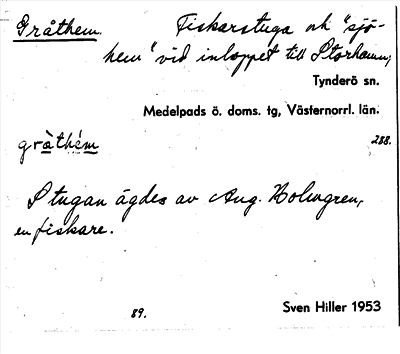 Gråthem. Fiskarstuga och "sjö-
hem" vid inloppet till Storhamn,
Tynderö sn.
Medelpads ö. doms. tg, Västernorrl. län.
gràthém 288.
Stugan ägdes av Aug. Holmgren,
en fiskare.
89. Sven Hiller 1953